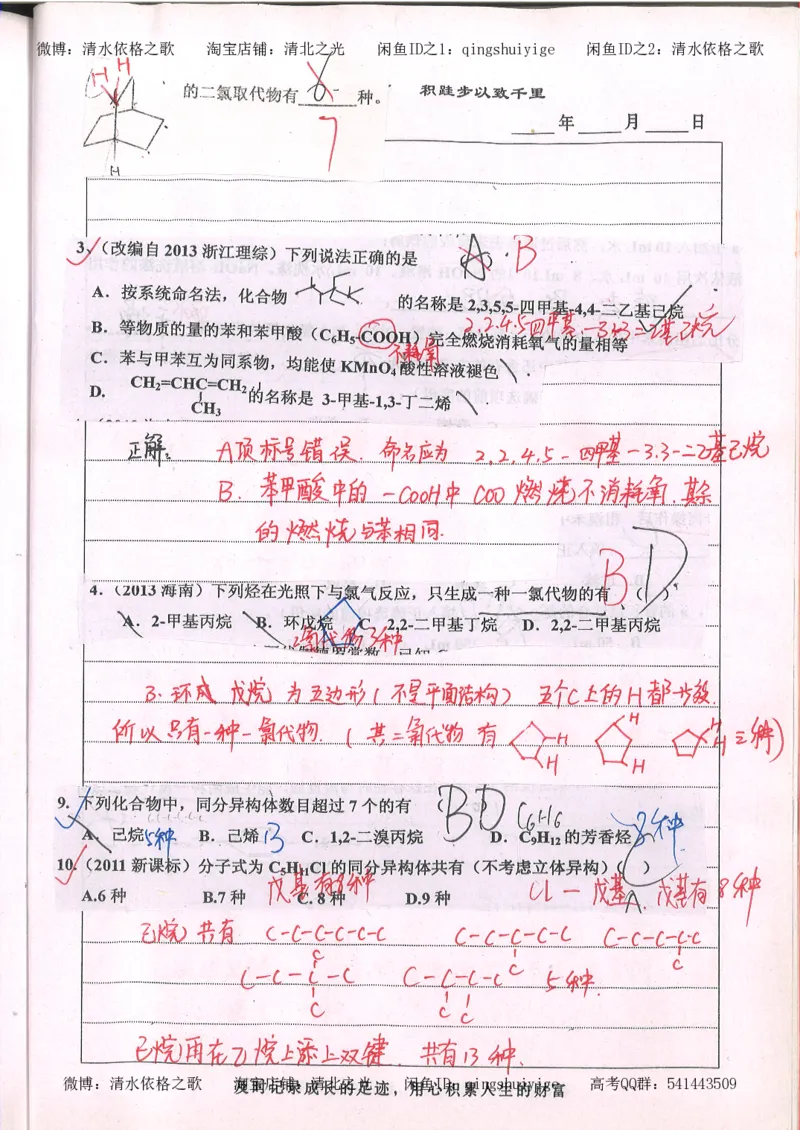 微博：清水依格之歌 淘宝店铺：清北之光 闲鱼ID之1：qingshuiyige 闲鱼ID之2：清水依格之歌
H H
的二氯取代物有 6 种。 积跬步以致千里
7
年 月 日
H
3、（改编自 2013 浙江理综）下列说法正确的是 A . B
A．按系统命名法，化合物 的名称是 2,3,5,5-四甲基-4,4-二乙基己烷
2,2,4,5四甲基-3,3-二乙基己烷
B．等物质的量的苯和苯甲酸（C₆H₅-COOH）完全燃烧消耗氧气的量相等
不耗氧
C．苯与甲苯互为同系物，均能使 KMnO₄ 酸性溶液褪色
D. CH₂=CHC=CH₂ 的名称是 3-甲基-1,3-丁二烯
CH₃
正解： A项标号错误. 命名应为 2,2,4,5-四甲基-3.3-二乙基己烷
B. 苯甲酸中的 -COOH中 COO 燃烧不消耗氧.其余
的燃烧与苯相同.
4.（2013 海南）下列烃在光照下与氯气反应，只生成一种一氯代物的有 （ ） BD
A．2-甲基丙烷 B．环戊烷 C．2,2-二甲基丁烷 D．2,2-二甲基丙烷
二氯代物3种
B.环戊烷为五边形(不是平面结构) 五个C上的H都一致.
所以只有一种一氯代物. (共二氯代物有 H H H H H H 三种)
9. 下列化合物中，同分异构体数目超过 7 个的有 （ ） BD
A．己烷 5种 B．己烯 13 C．1,2-二溴丙烷 D．C₉H₁₂ 的芳香烃 8种
10.（2011 新课标）分子式为 C₅H₁₁Cl 的同分异构体共有（不考虑立体异构）（ ）
A.6 种 B.7 种 C. 8 种 D.9 种
戊基有8种 Cl — 戊基 戊基有8种
己烷共有 C-C-C-C-C-C C-C-C-C-C C-C-C-C-C
C C C
C-C-C-C C-C-C-C 5种.
C C C
己烷再在己烷上添上双键. 共有13种.
微博：清水依格之歌 淘宝店铺：清北之光 闲鱼ID：qingshuiyige 高考QQ群：541443509
及时记录成长的足迹，用心积累人生的财富